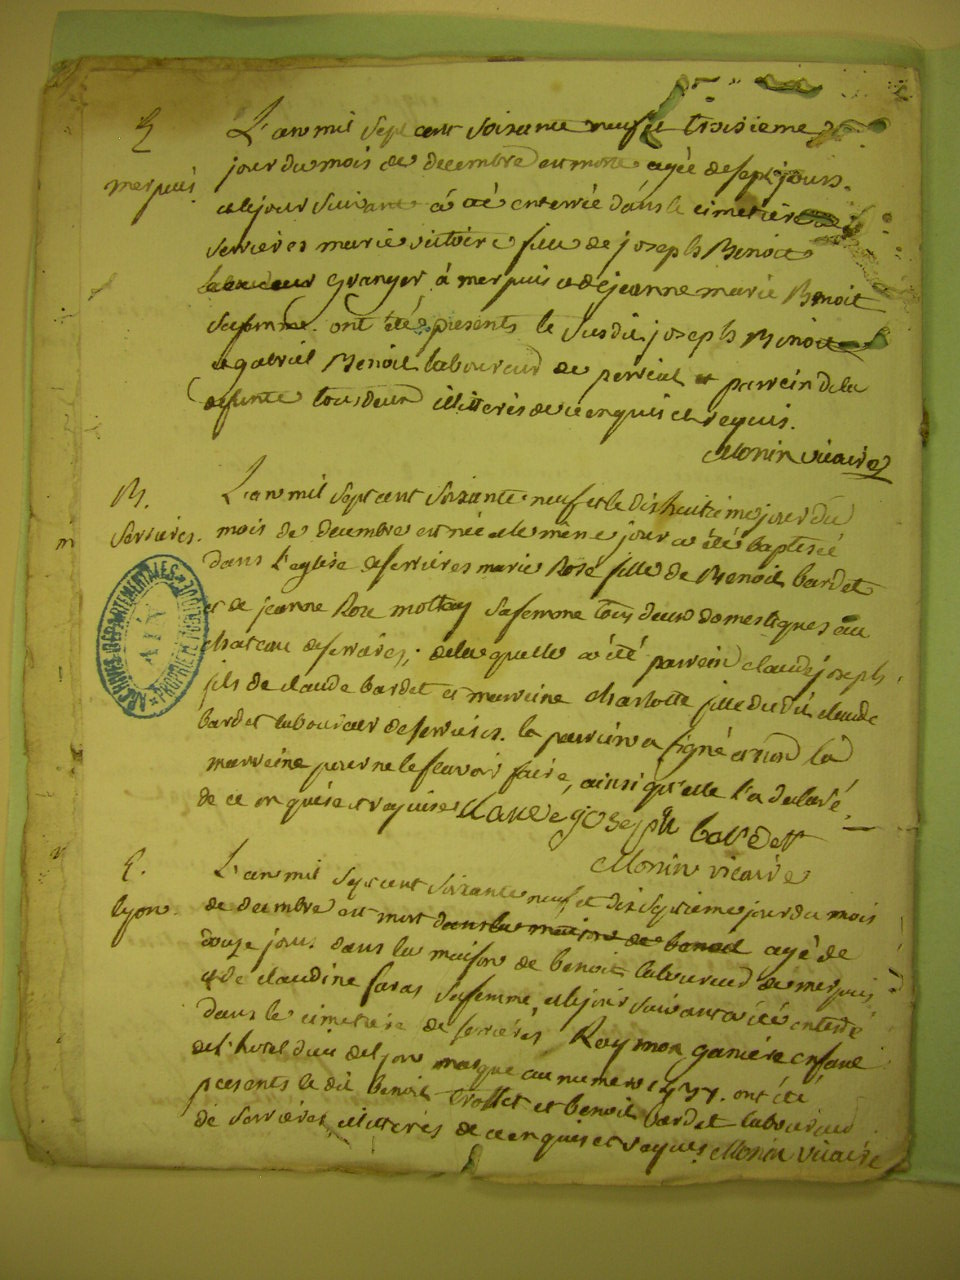 E
merpuis.
L'an mil sept cent soixante neuf et troisieme
jour du mois de decembre est morte agée de sept jours.
et le jour suivant a été enterrée dans le cimetiere de
serrieres marie victoire fille de joseph Benoit
granger à merpuis et de jeanne marie Benoit
sa femme. ont été presents le susdit joseph Benoit
et gabriel Benoit laboureur de et parrein de la
defunte tous deux illitterés de ce enquis et requis.
Monin vicaire
B.
Serrieres.
L'an mil sept cent soixante neuf et le dix huitieme jour du
mois de decembre est née et le même jour a été baptisée
dans l'eglise de serrieres marie Rose fille de Benoit bardet
et de jeanne Rose mollay sa femme tous deux domestiques au
chateau de serrieres, de laquelle a été parrein claude joseph
fils de claude bardet et marreine charlotte fille du dit claude
bardet laboureur de serrieres. le parrein a signé et non la
marreine pour ne le sçavoir faire, ainsi qu'elle l'a declaré,
de ce enquise et requise Claude joseph bardet
Monin vicaire
E.
lyon.
L'an mil sept cent soixante neuf, et dix septieme jour du mois
de decembre est mort dans la maison de benoit agé de
douze jours dans la maison de benoit laboureur de merpuis
et de claudine faras sa femme, et le jour suivant a été enterré
dans le cimetiere de serrieres Raymon ganiere enfant
de l'hotel dieu de lyon marque au numero ont été
presents le dit benoit Trollet et benoit bardet laboureur
de serrieres, illiterés de ce enquis et requis Monin vicaire
ARCHIVES DEPARTEMENTALES
AIN
PROPRIETE PUBLIQUE